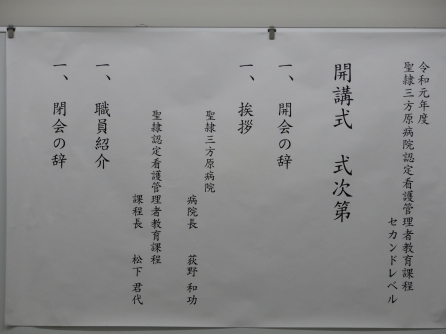 令和元年度
聖隷三方原病院認定看護管理者教育課程
セカンドレベル
開講式　式次第
一、開会の辞
一、挨拶
聖隷三方原病院
病院長　荻野 和功
聖隷認定看護管理者教育課程
課程長　松下 君代
一、職員紹介
一、閉会の辞